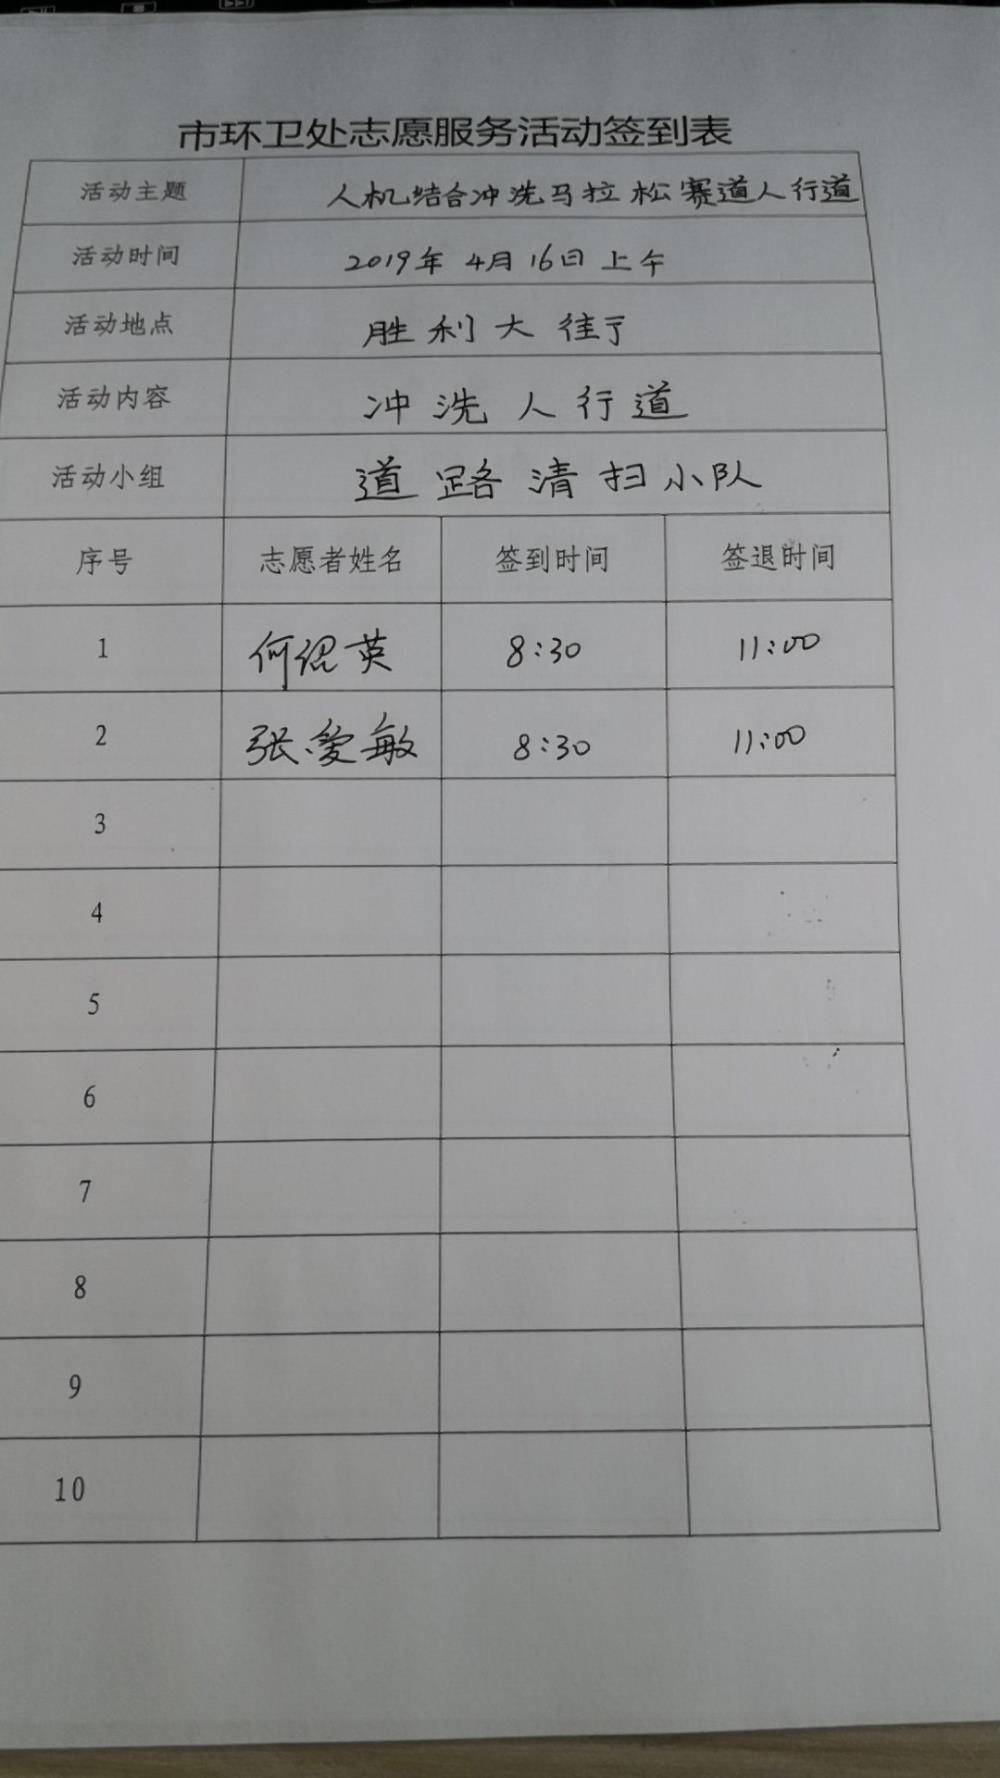 市环卫处志愿服务活动签到表
活动主题 人机结合冲洗马拉松赛道人行道
活动时间 2019年4月16日上午
活动地点 胜利大街
活动内容 冲洗人行道
活动小组 道路清扫小队
序号 志愿者姓名 签到时间 签退时间
1 何 英 8:30 11:00
2 张爱敏 8:30 11:00
3
4
5
6
7
8
9
10